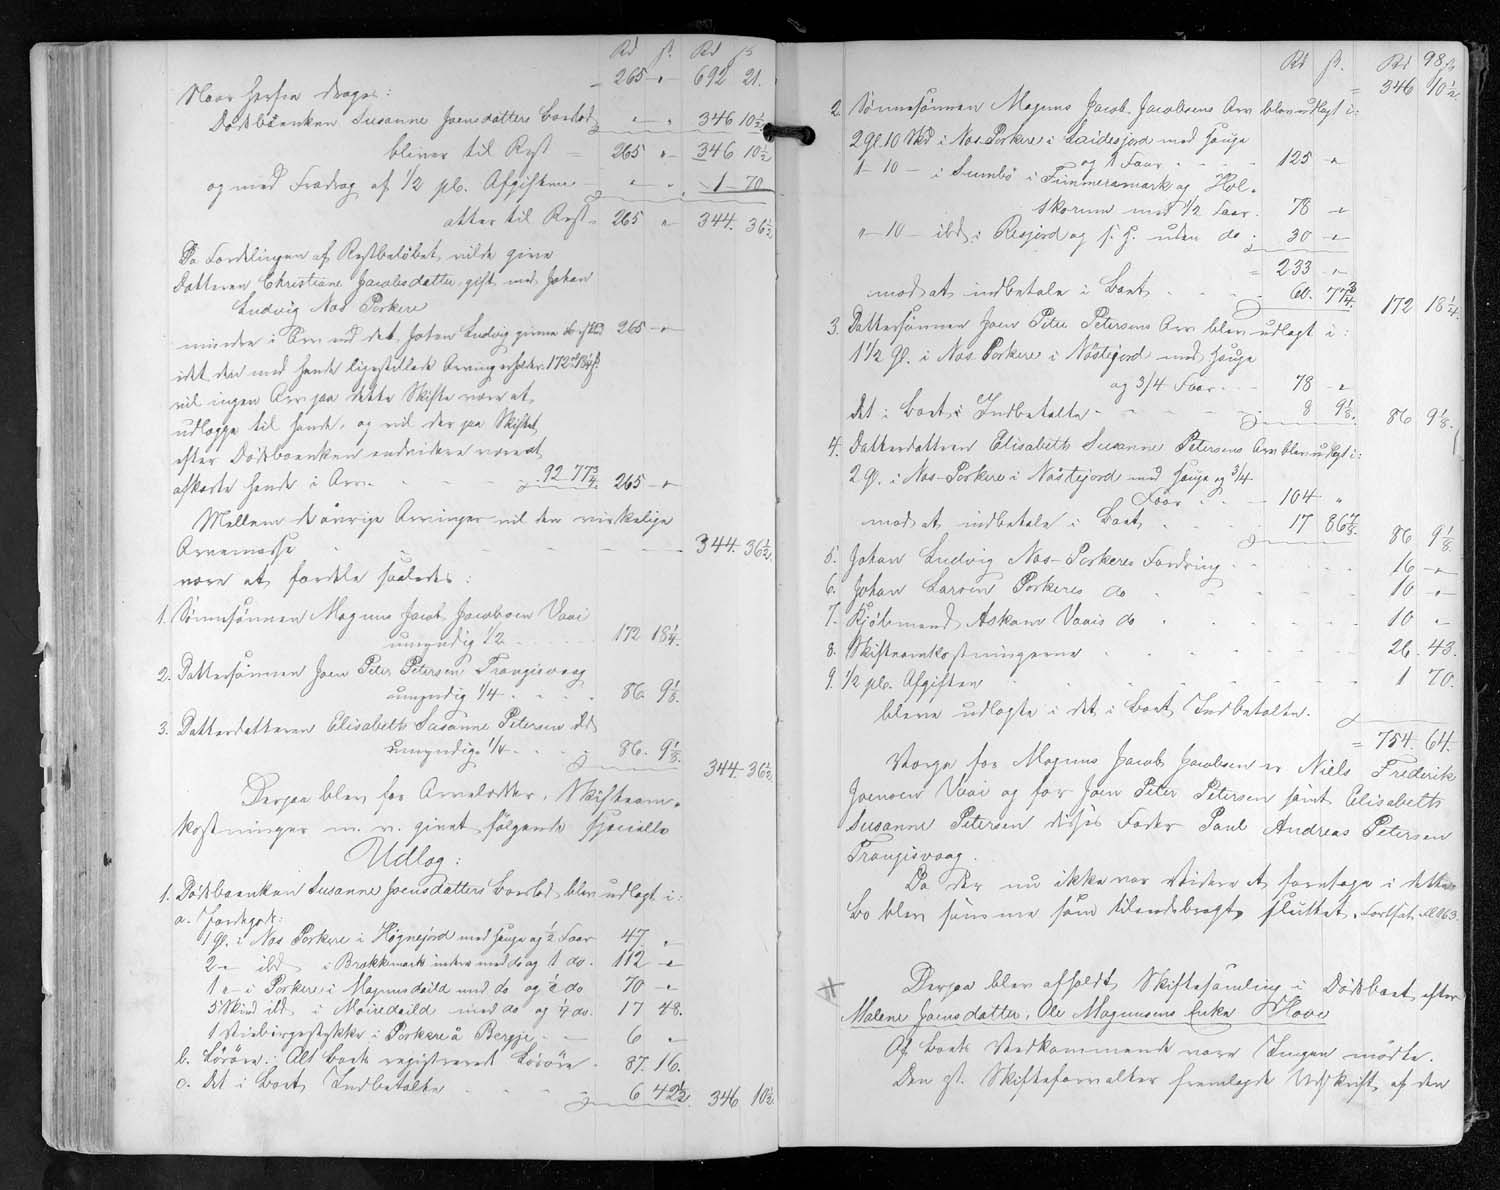 Rd ß. Rd ß
265 " 692 21.
Naar herfra drages:
Dödsboenken Susanne Joensdatters Boeslod " " 346 10½
bliver til Rest = 265 " 346 10½
og med Fradrag af ½ pC. Afgiften " " 1 70
atter til Rest 265 " 344. 36½
Da Fordelingen af Restbelöbet vilde give
Datteren Christiane Jacobsdatter gift med Johan
Ludvig Nos Porkere
mindre i Arv end det, Johan Ludvig 265 "
idet den med hende ligestillede Arving erholder 172 18¼ ß
vil ingen Arv paa dette Skifte være at
udlægge til hende, og vil der paa Skiftet
efter Dödsboenken endvidere være at
afkorte hende i Arv. 92 77¾ 265 "
Mellem de övrige Arvinger vil den virkelige
Arvemasse 344. 36½
være at fordele saaledes:
1. Sönnesönnen Magnus Jacob Jacobsen Vaai
umyndig ½ 172 18¼
2. Dattersönnen Joen Peter Petersen Trangisvaag
umyndig ¼ 86. 9⅛
3. Datterdatteren Elisabeth Susanne Petersen ibd
umyndig ¼ 86. 9⅛ 344. 36½
Derpaa blev for Arvelodder, Skifteom-
kostninger m. v. givet fölgende specielle
Udlæg:
1. Dödboenken Susanne Joensdatters Boeslod blev udlagt i:
a. Jordegods:
1 Gl. i Nos Porkere i Högnejord med Hauge og ½ Faar 47. "
2 " ibd i Brekkemark inders med do og 1 do. 112 "
1 " i Porkere i Magnusdeild med do og ½ do 70 "
5 Skind ibd i Moiredeild med do og ¼ do. 17 48.
1 Stiebirgestykke i Porkere å Bergje 6 "
b. Lösöre: Alt Boets registrerede Lösöre 87. 16.
c. Det i Boet Indbetalte 6 42½ 346 10½
98.
Rd ß. Rd ß
= 346 10½
2. Sönnesönnen Magnus Jacob Jacobsens Arv blev udlagt i:
2 Gl. 10 Skd i Nos Porkere i Laidesjord med Hauge
og 1 Faar 125 "
1 - 10 - i Sumbö i Timmeramark og Hol-
skorum med ½ Faar. 78 "
" - 10 - ibd. i Resjord og s. H. uden do 30 "
= 233 "
mod at indbetale i Boet 60. 77¾ 172 18¼
3. Dattersönnen Joen Peter Petersens Arv blev udlagt i:
1½ Gl. i Nos Porkere i Nöstejord med Hauge
og 3/4 Faar 78 "
Det i Boet Indbetalte 8 9⅛ 86 9⅛.
4. Datterdattren Elisabeth Susanne Petersens Arv blev udlagt i:
2 Gl. i Nos-Porkere i Nöstejord med Hauge og ¾
Faar 104 "
mod at indbetale i Boet 17 86⅞ 86 9⅛.
5. Johan Ludvig Nos-Porkeres Fordring 16 "
6. Johan Larsen Porkeres do 10 "
7. Kjöbmand Askam Vaais do 10 "
8. Skifteomkostningerne 26. 43.
9. ½ pC. Afgiften 1 70.
bleve udlagte i det i Boet Indbetalte.
= 754. 64.
Værge for Magnus Jacob Jacobsen er Niels Frederik
Joensen Vaai og for Joen Peter Petersen samt Elisabeth
Susanne Petersen disses Fader Paul Andreas Petersen
Trangisvaag.
Da der nu ikke var Videre at foretage i dette
Bo blev samme som tilendebragt sluttet. Fortsat. fol 163.
Derpaa blev afholdt Skiftesamling i Dödsboet efter
Malene Joensdatter, Ole Magnussens Enke Hove
Af Boets Vedkommende vare Ingen mödte.
Den gt. Skifteforvalter fremlagde Udskrift af den